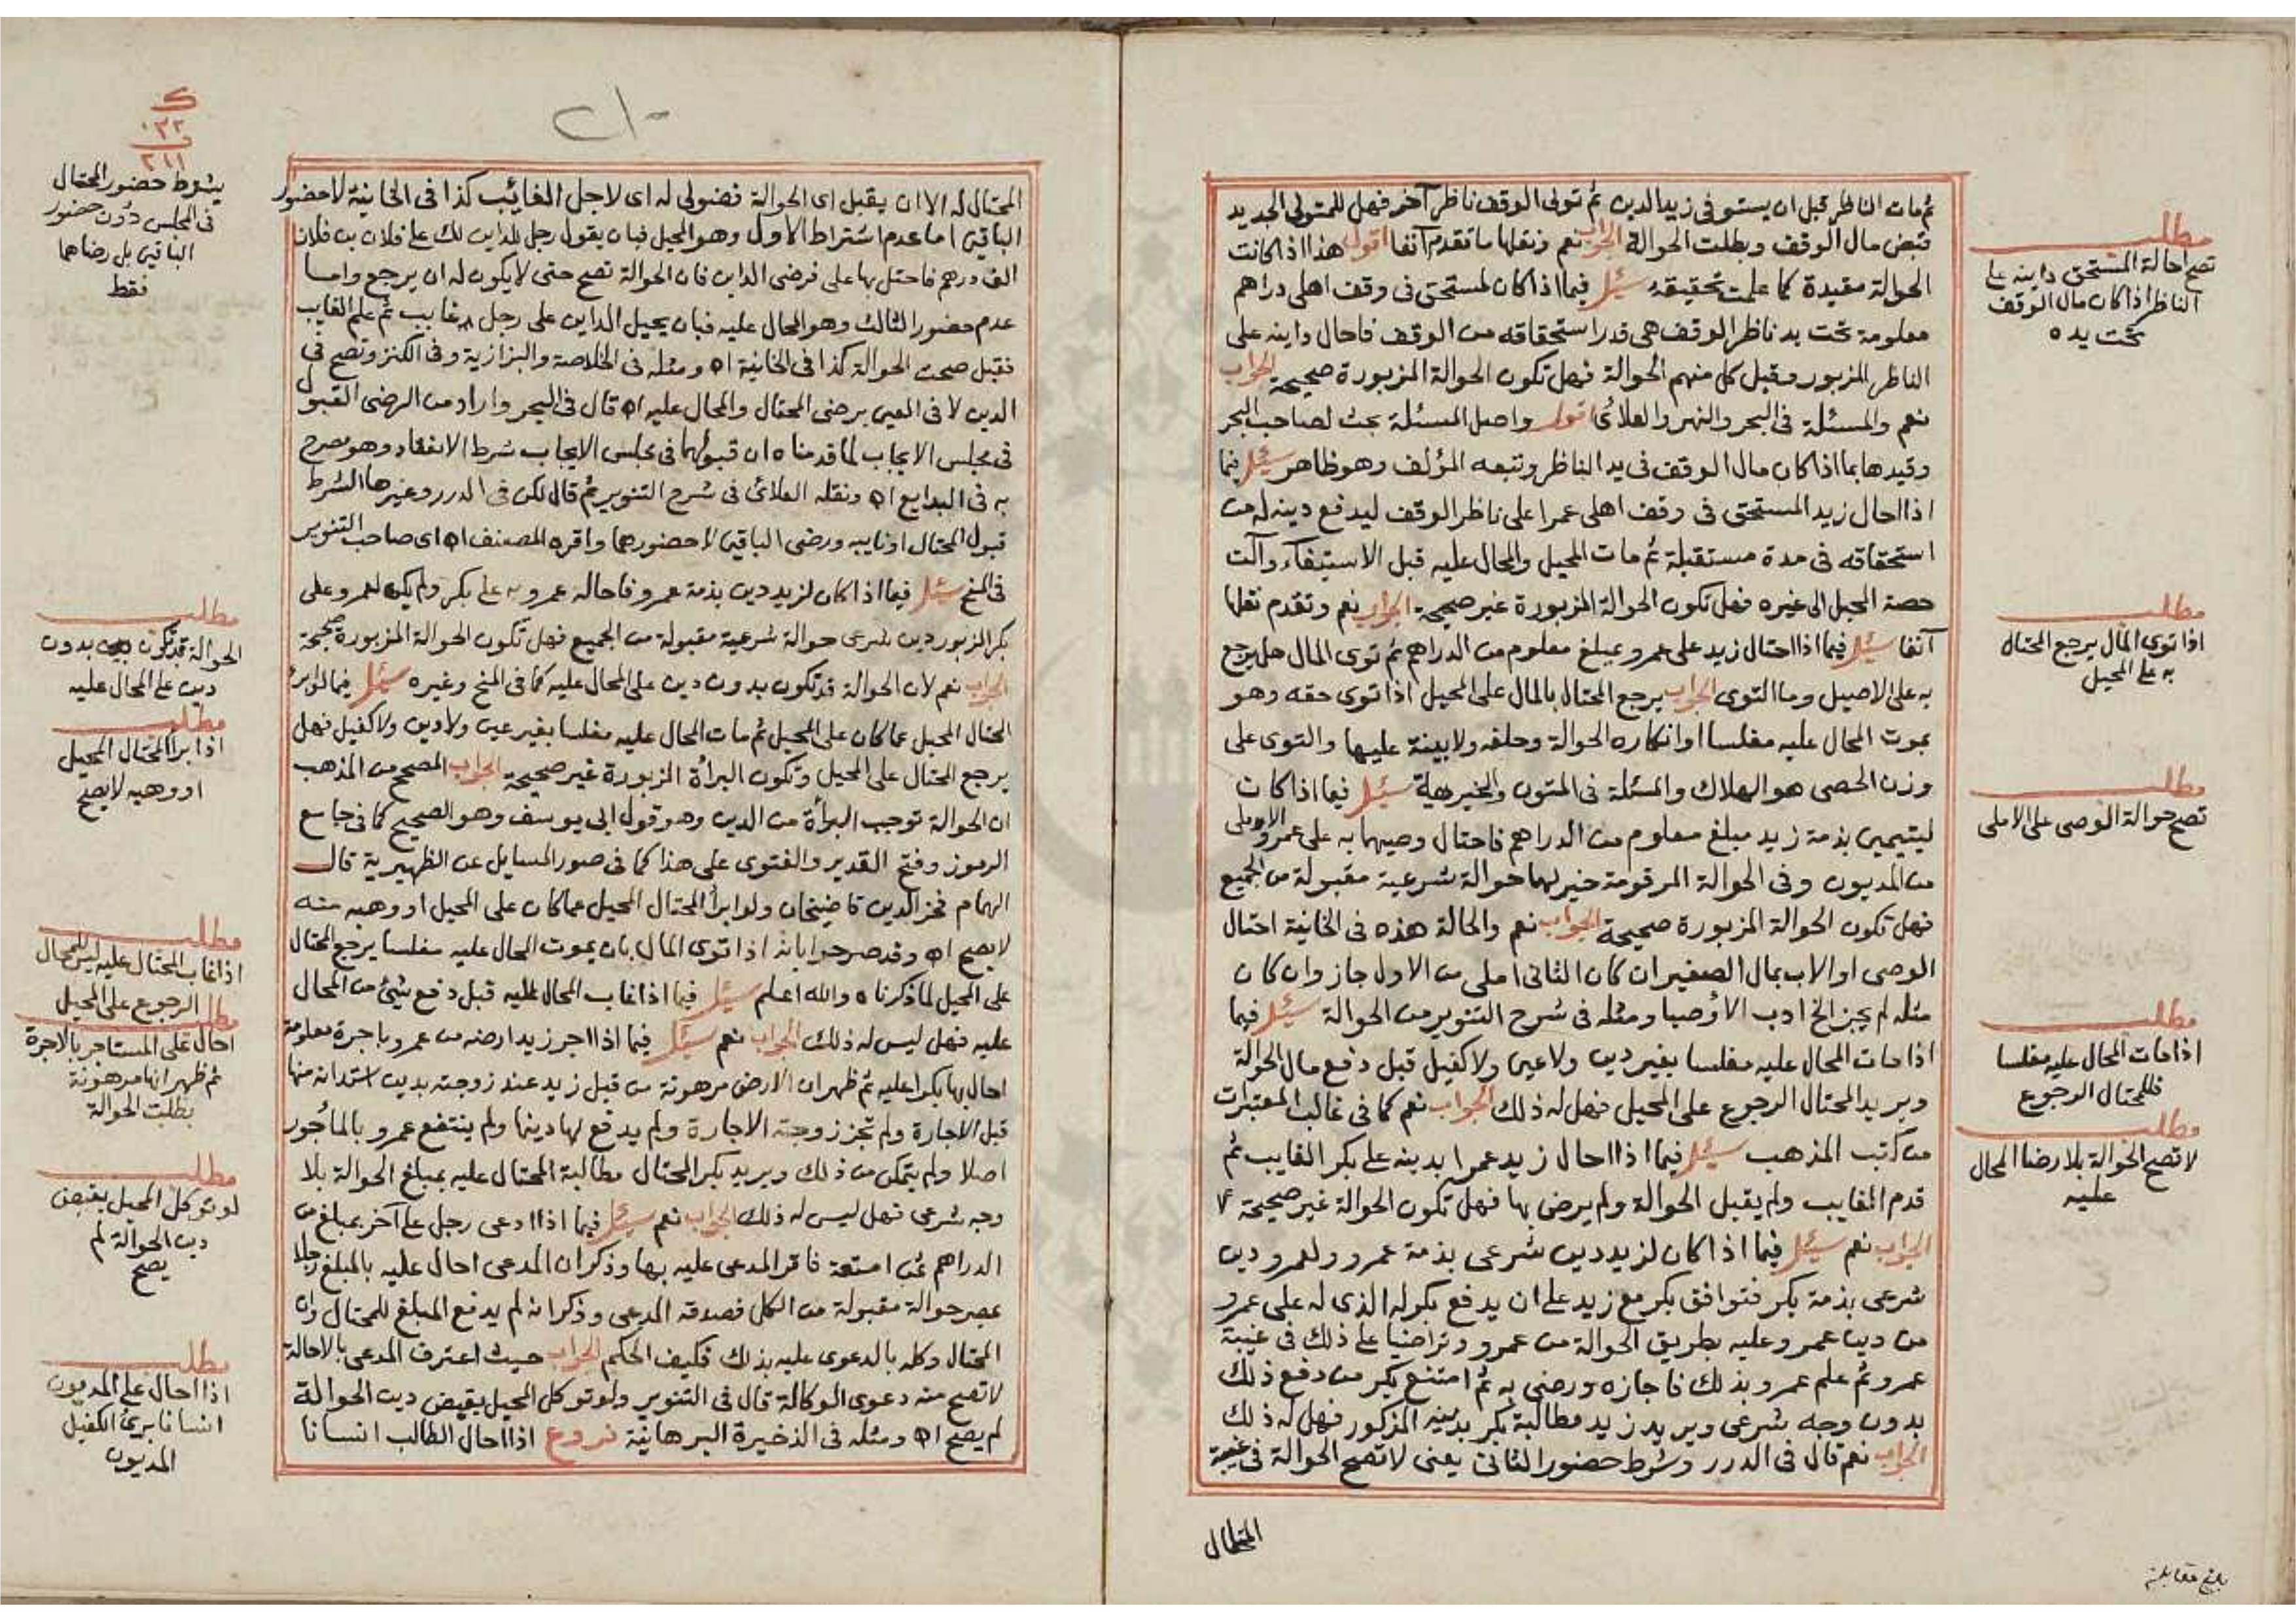 ثم مات الناظر قبل ان يستوفى زيد الدين ثم تولى الوقف ناظر آخر فهل للمتولى الجديد
قبض مال الوقف وبطلت الحوالة الجواب نعم ونقلها ما تقدم آنفا اقول هذا اذا كانت
الحوالة مقيدة كما علمت تحقيقه سئل فيما اذا كان لمستحق فى وقف اهلى دراهم
معلومة تحت يد ناظر الوقف هى قدر استحقاقه من الوقف فاحال داينه على
الناظر المزبور وقبل كل منهم الحوالة فهل تكون الحوالة المزبورة صحيحة الجواب
نعم والمسئلة فى البحر والنهر والعلائى اقول واصل المسئلة بحث لصاحب البحر
وقيدها بما اذا كان مال الوقف فى يد الناظر وتبعه المؤلف وهو ظاهر سئل فيما
اذا احال زيد المستحق فى وقف اهلى عمرا على ناظر الوقف ليدفع دينه له من
استحقاقه فى مدة مستقبلة ثم مات المحيل والمحال عليه قبل الاستيفاء وآلت
حصة المحيل الى غيره فهل تكون الحوالة المزبورة غير صحيحة الجواب نعم وتقدم نقلها
آنفا سئل فيما اذا احتال زيد على عمرو بمبلغ معلوم من الدراهم ثم توى المال هل يرجع
به على الاصيل وما التوى الجواب يرجع المحتال بالمال على المحيل اذا توى حقه وهو
بموت المحال عليه مفلسا او انكاره الحوالة وحلفه ولا بينة عليها والتوى على
وزن الحصى هو الهلاك والمسئلة فى المتون والخيرية سئل فيما اذا كان
ليتيمين بذمة زيد مبلغ معلوم من الدراهم فاحتال وصيهما به على عمرو الاملى
من المديون وفى الحوالة المرقومة خير لهما حوالة شرعية مقبولة من الجميع
فهل تكون الحوالة المزبورة صحيحة الجواب نعم والحالة هذه فى الخانية احتال
الوصى او الاب بمال الصغير ان كان الثانى املى من الاول جاز وان كان
مثله لم يجز الخ ادب الأوصيا ومثله فى شرح التنوير من الحوالة سئل فيما
اذا مات المحال عليه مفلسا بغير دين ولا عين ولا كفيل قبل دفع مال الحوالة
ويريد المحتال الرجوع على المحيل فهل له ذلك الجواب نعم كما فى غالب المعتبرات
من كتب المذهب سئل فيما اذا احال زيد عمرا بدينه على بكر الغايب ثم
قدم الغايب ولم يقبل الحوالة ولم يرض بها فهل تكون الحوالة غير صحيحة
الجواب نعم سئل فيما اذا كان لزيد دين شرعى بذمة عمرو ولعمرو دين
شرعى بذمة بكر فتوافق بكر مع زيد على ان يدفع بكر له الذى له على عمرو
من دين عمرو عليه بطريق الحوالة من عمرو وتراضيا على ذلك فى غيبة
عمرو ثم علم عمرو بذلك فاجازه ورضى به ثم امتنع بكر من دفع ذلك
بدون وجه شرعى ويريد زيد مطالبة بكر بدينه المذكور فهل له ذلك
الجواب نعم قال فى الدرر وشرط حضور الثانى يعنى لا تصح الحوالة فى غيبة
المحتال
بلغ مقابلة
مطلب
تصح احالة المستحق داينه على
الناظر اذا كان مال الوقف
تحت يده
مطلب
اذا توى المال يرجع المحتال
به على المحيل
مطلب
تصح حوالة الوصى على الاملى
مطلب
اذا مات المحال عليه مفلسا
فللمحتال الرجوع
مطلب
لا تصح الحوالة بلا رضا المحال
عليه
٢١٠
المحتال له الا ان يقبل اى الحوالة فضولى له اى لاجل الغائب كذا فى الخانية لا حضور
الباقيين اما عدم اشتراط الاول وهو المحيل فبان يقول رجل للداين لك على فلان بن فلان
الف درهم فاحتل بها على فرضى الداين فان الحوالة تصح حتى لا يكون له ان يرجع واما
عدم حضور الثالث وهو المحال عليه فبان يحيل الداين على رجل غايب ثم علم الغايب
فقبل صحت الحوالة كذا فى الخانية اه ومثله فى الخلاصة والبزازية وفى الكنز وتصح فى
الدين لا فى العين برضى المحتال والمحال عليه اه قال فى البحر واراد من الرضى القبول
فى مجلس الايجاب لما قدمناه ان قبولهما فى مجلس الايجاب شرط الانعقاد وهو مصرح
به فى البدايع اه ونقله العلائى فى شرح التنوير ثم قال لكن فى الدرر وغيرها الشرط
قبول المحتال او نايبه ورضى الباقيين لا حضورهما واقره المصنف اه اى صاحب التنوير
فى المنح سئل فيما اذا كان لزيد دين بذمة عمرو فاحاله عمرو به على بكر ولم يكن لعمرو على
بكر المزبور دين شرعى حوالة شرعية مقبولة من الجميع فهل تكون الحوالة المزبورة صحيحة
الجواب نعم لان الحوالة قد تكون بدون دين على المحال عليه كما فى المنح وغيره سئل فيما لو ابرئ
المحتال المحيل عما كان على المحيل ثم مات المحال عليه مفلسا بغير عين ولا دين ولا كفيل فهل
يرجع المحتال على المحيل وتكون البراة المزبورة غير صحيحة الجواب المصحح من المذهب
ان الحوالة توجب البرأة من الدين وهو قول ابى يوسف وهو الصحيح كما فى جامع
الرموز وفتح القدير والفتوى على هذا كما فى صور المسايل عن الظهيرية قال
الهمام فخر الدين قاضيخان ولو ابرأ المحتال المحيل عما كان على المحيل او وهبه منه
لا يصح اه وقد صرحوا بانه اذا توى المال بان يموت المحال عليه مفلسا يرجع المحتال
على المحيل لما ذكرناه والله اعلم سئل فيما اذا غاب المحال عليه قبل دفع شيئ من المحال
عليه فهل ليس له ذلك الجواب نعم سئل فيما اذا اجر زيد ارضه من عمرو باجرة معلومة
احال بها بكرا عليه ثم ظهر ان الارض مرهونة من قبل زيد عند زوجته بدين استدانه منها
قبل الاجارة ولم تجز زوجته الاجارة ولم يدفع لها دينها ولم ينتفع عمرو بالمأجور
اصلا ولم يتمكن من ذلك ويريد بكر المحتال مطالبة المحتال عليه بمبلغ الحوالة بلا
وجه شرعى فهل ليس له ذلك الجواب نعم سئل فيما اذا ادعى رجل على آخر بمبلغ من
الدراهم ثمن امتعة فاقر المدعى عليه بها وذكر ان المدعى احال عليه بالمبلغ رجلا
بمصر حوالة مقبولة من الكل فصدقه المدعى وذكر انه لم يدفع المبلغ للمحتال وان
المحتال وكله بالدعوى عليه بذلك فكيف الحكم الجواب حيث اعترف المدعى بالاحالة
لا تصح منه دعوى الوكالة قال فى التنوير ولو توكل المحيل بقبض دين الحوالة
لم يصح اه ومثله فى الذخيرة البرهانية فروع اذا احال الطالب انسانا
٢١١
يشترط حضور المحتال
فى المجلس دون حضور
الباقين بل رضاهما
فقط
مطلب
الحوالة قد تكون بدون
دين على المحال عليه
مطلب
اذا ابرأ المحتال المحيل
او وهبه لا يصح
مطلب
اذا غاب المحتال عليه ليس للمحال
الرجوع على المحيل
مطلب
احال على المستاجر بالاجرة
ثم ظهر انها مرهونة
بطلت الحوالة
مطلب
لو توكل المحيل بقبض
دين الحوالة لم
يصح
مطلب
اذا احال على المديون
انسانا برئ الكفيل
المديون